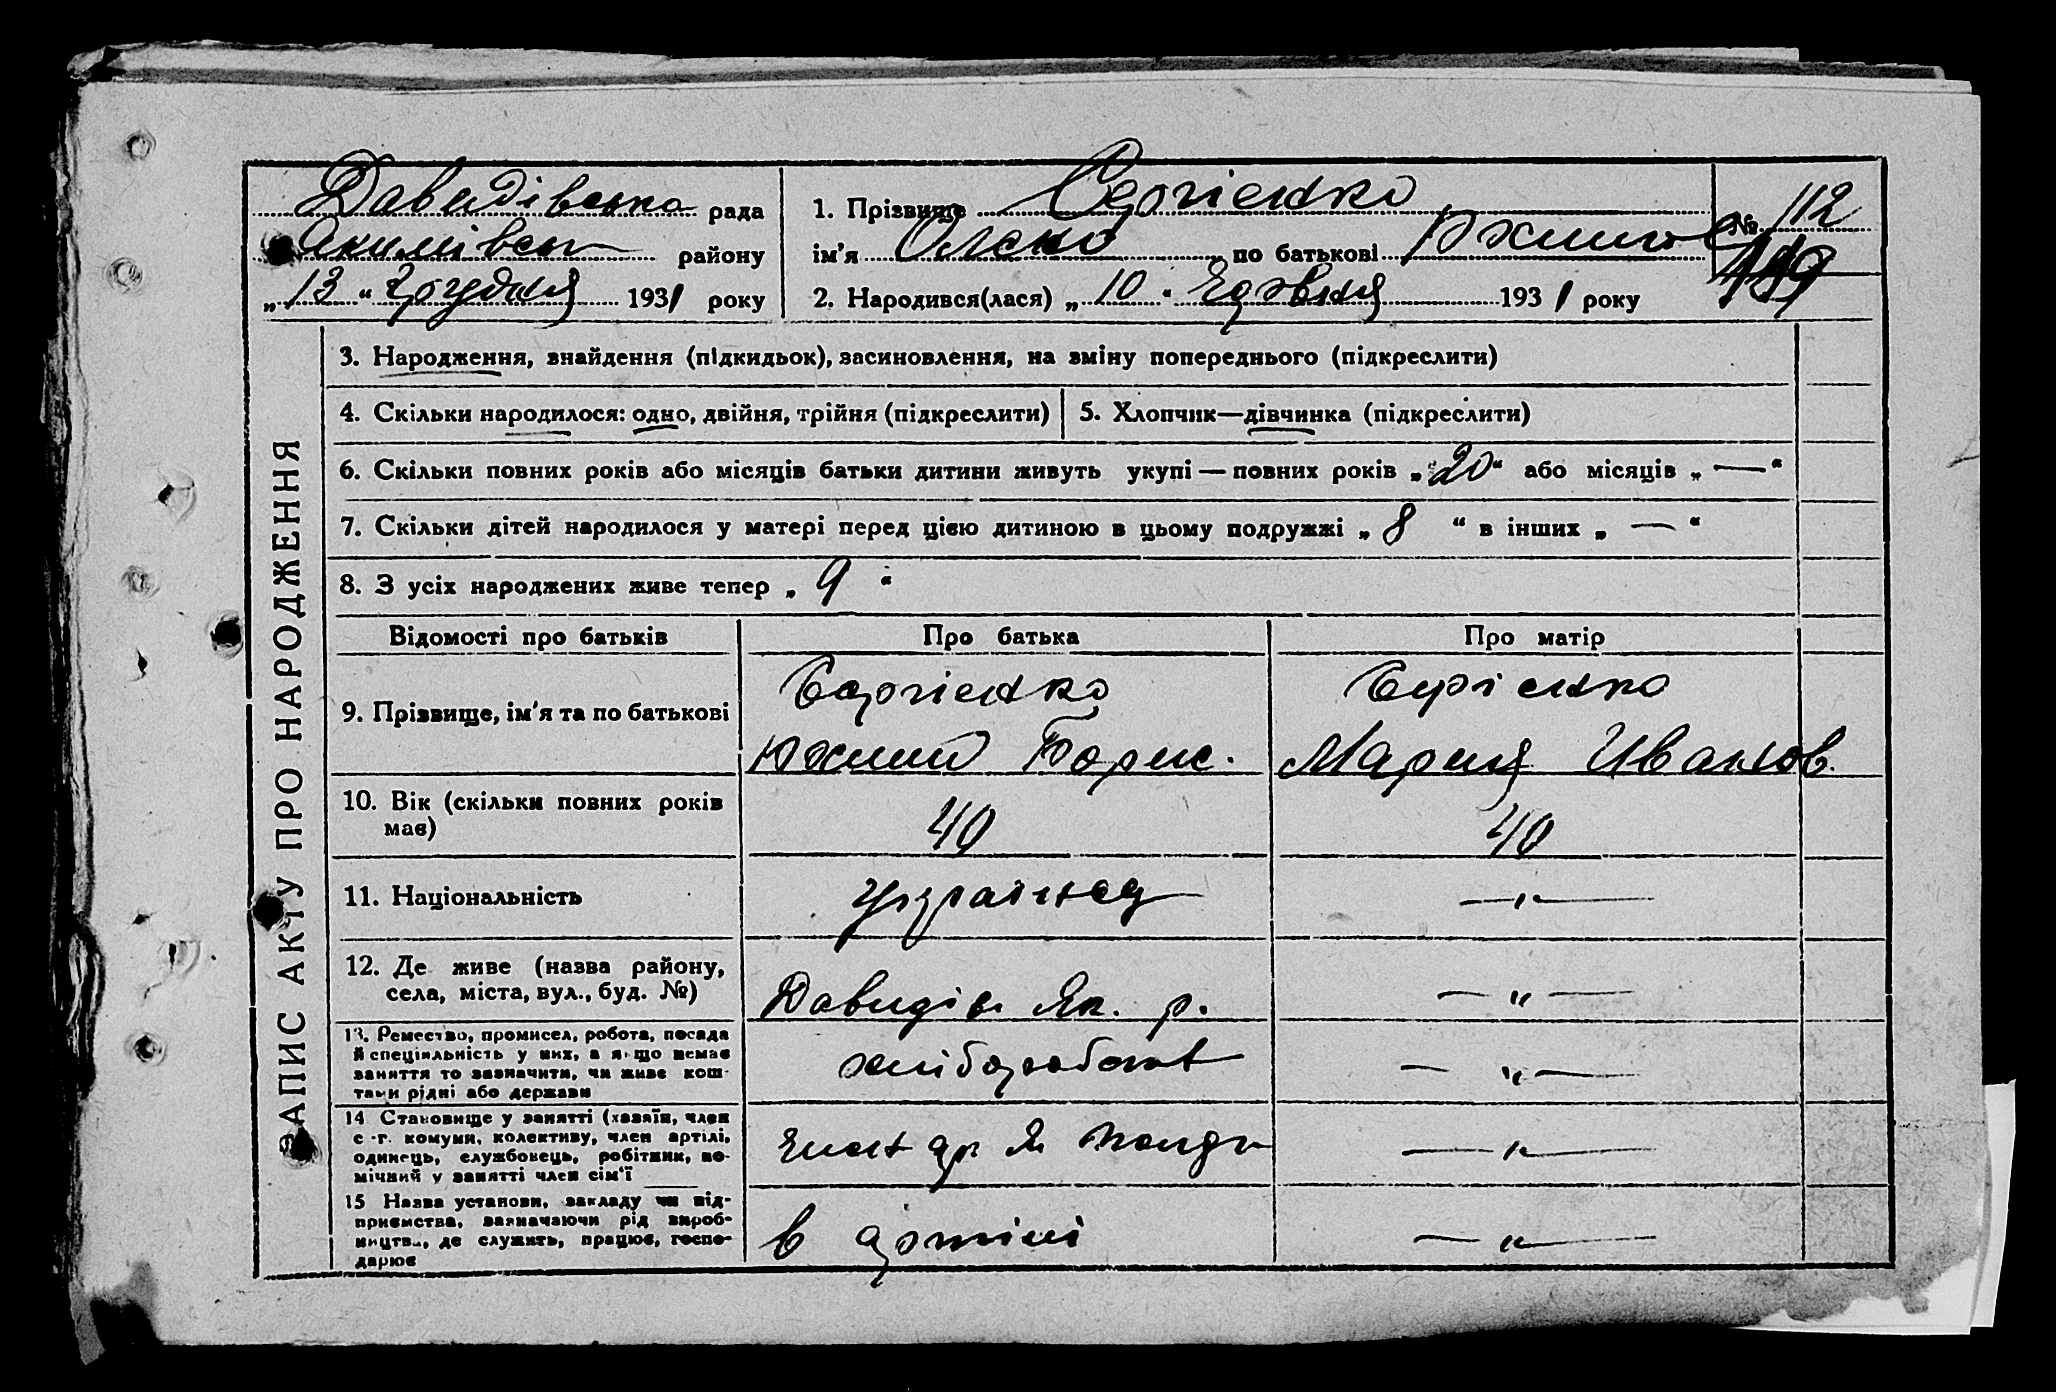 Давидівська рада
Якимівськ району
„ 13 “ Грудня 1931 року
1. Прізвище Сергієнко
ім'я по батькові
2. Народився(лася) „ 10 “ 1931 року
№ 112
119
ЗАПИС АКТУ ПРО НАРОДЖЕННЯ
3. Народження, знайдення (підкидьок), засиновлення, на зміну попереднього (підкреслити)
4. Скільки народилося: одно, двійня, трійня (підкреслити)
5. Хлопчик—дівчинка (підкреслити)
6. Скільки повних років або місяців батьки дитини живуть укупі — повних років „ 20 “ або місяців „ — “
7. Скільки дітей народилося у матері перед цією дитиною в цьому подружжі „ 8 “ в інших „ — “
8. З усіх народжених живе тепер „ 9 “
Відомості про батьків Про батька Про матір
9. Прізвище, ім'я та по батькові
Сергієнко
Юхим Борис.
Сергієнко
Мария Иванов.
10. Вік (скільки повних років
має)
40 40
11. Національність українец — „ —
12. Де живе (назва району,
села, міста, вул., буд. №)
Давидів. Як. р. — „ —
13. Ремество, промисел, робота, посада
й спеціяльність у них, а якщо немає
заняття то зазначити, чи живе кош-
тами рідні або держави
хлібороб — „ —
14 Становище у занятті (хазяїн, член
с.-г. комуни, колективу, член артілі,
одинець, службовець, робітник, по-
мічний у занятті член сім'ї
— „ —
15 Назва установи, закладу чи під-
приємства, зазначаючи рід вироб-
ництва, де служить, працює, госпо-
дарює
в артілі — „ —